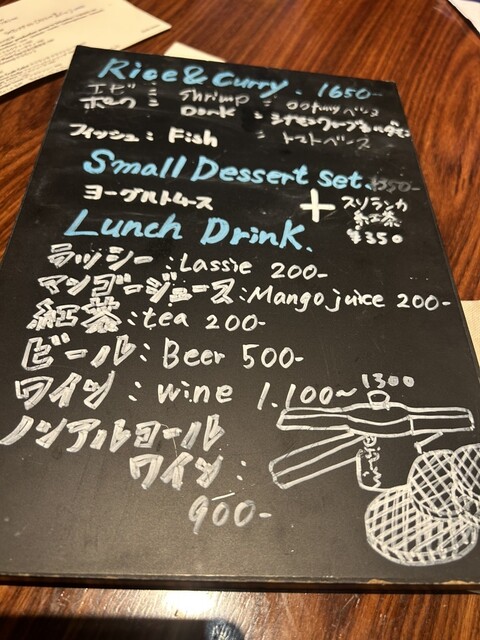 Rice & Curry. 1650-
エビ : shrimp :
ポーク : pork : シナモン クローブ
フィッシュ : Fish : トマトベース
Small Dessert set.
ヨーグルトムース + スリランカ
紅茶
¥350
Lunch Drink.
ラッシー : Lassie 200-
マンゴージュース : Mango juice 200-
紅茶 : tea 200-
ビール : Beer 500-
ワイン : wine 1.100~1300
ノンアルコール
ワイン :
900-